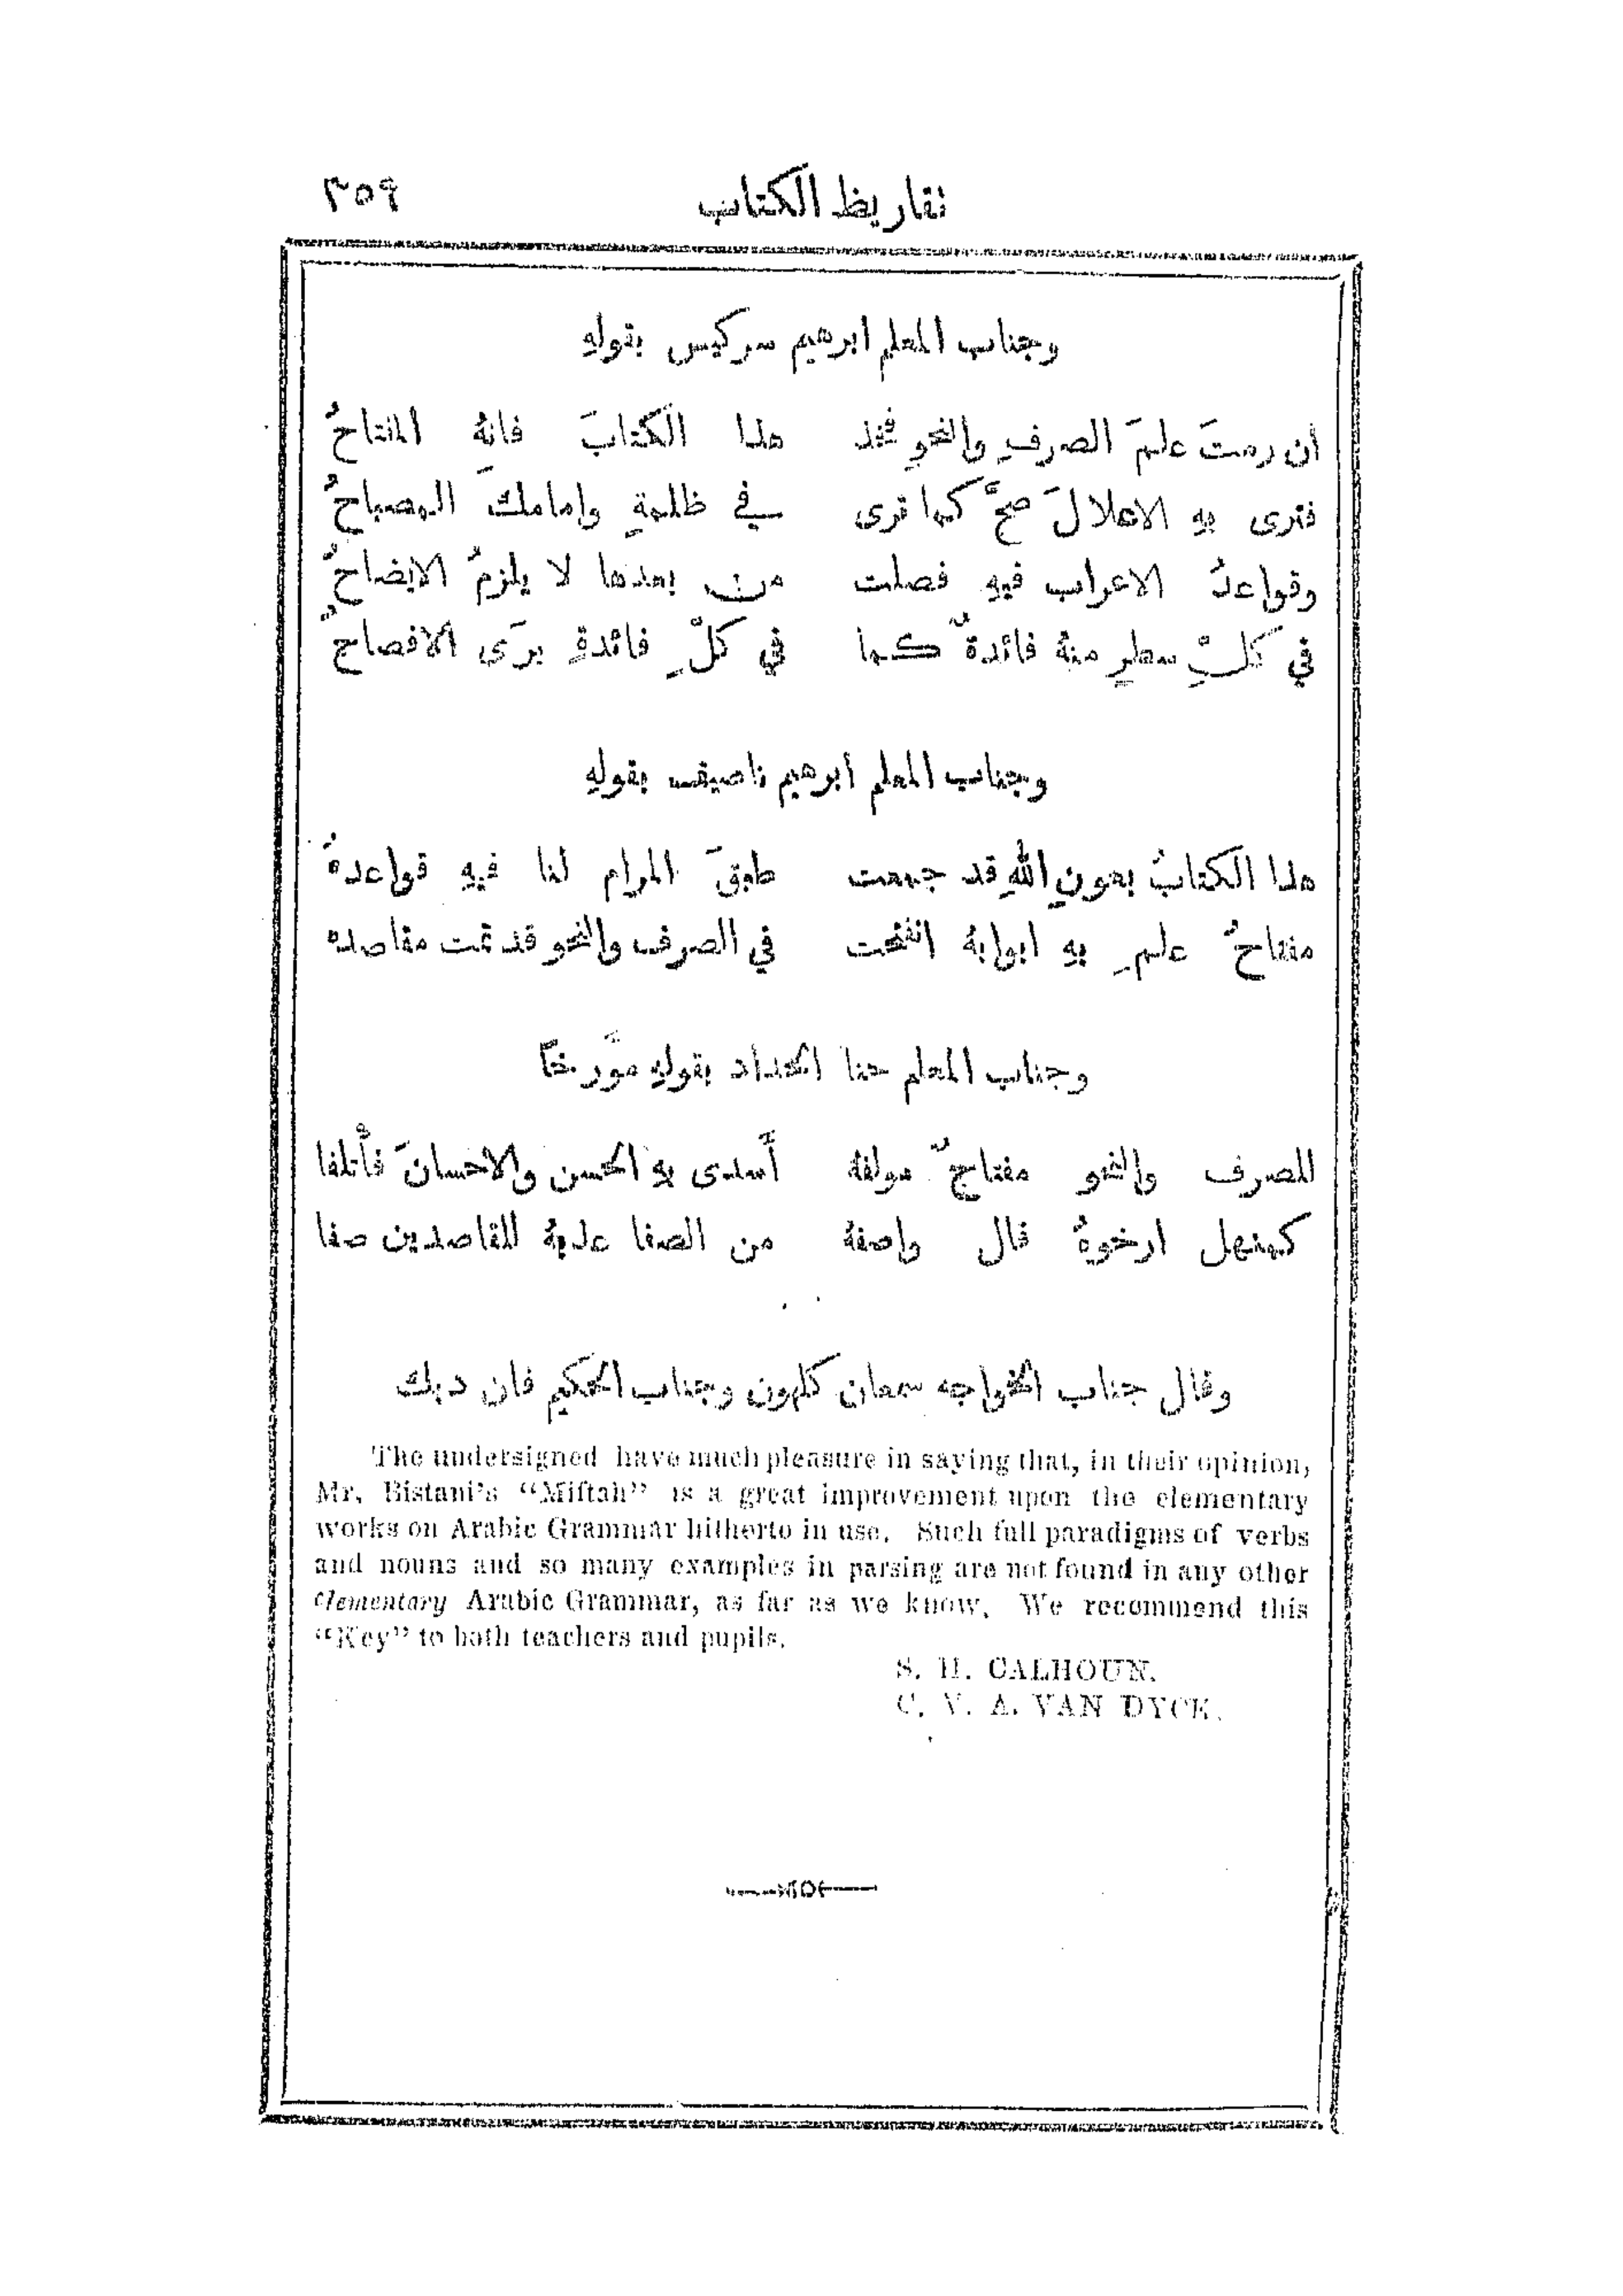 تقاريظ الكتاب ٣٥٩
وجناب المعلم ابرهيم سركيس بقولهِ
أن رمتَ علمَ الصرفِ والنحوِ فخذ هذا الكتابَ فانهُ المفتاحُ
فترى بهِ الاعلالَ صحَّ كما ترى في ظلمةٍ وامامكَ المصباحُ
وقواعدُ الاعراب فيهِ فصلت من بعدها لا يلزمُ الايضاحُ
في كلّ سطرٍ منهُ فائدةٌ كما في كلّ فائدةٍ يرَى الافصاحُ
وجناب المعلم أبرهيم ناصيف بقولهِ
هذا الكتابُ بعونِ اللهِ قد جمعت طبقَ المرام لنا فيهِ قواعدهُ
مفتاحُ علمٍ بهِ ابوابهُ انفتحت في الصرف والنحو قد تمت مقاصده
وجناب المعلم حنا الحداد بقولهِ مؤَرخاً
للصرف والنحو مفتاحٌ مولفهُ أَسدى بهِ الحسن والاحسانَ فأْتلفا
كمنهل ارخوهُ قال واصفهُ من الصفا عذبهُ للقاصدين صفا
وقال جناب الخواجه سمعان كلهون وجناب الحكيم فان ديك
The undersigned have much pleasure in saying that, in their opinion,
Mr. Bistani's "Miftah" is a great improvement upon the elementary
works on Arabic Grammar hitherto in use. Such full paradigms of verbs
and nouns and so many examples in parsing are not found in any other
elementary Arabic Grammar, as far as we know. We recommend this
"Key" to both teachers and pupils.
S. H. CALHOUN.
C. V. A. VAN DYCK.